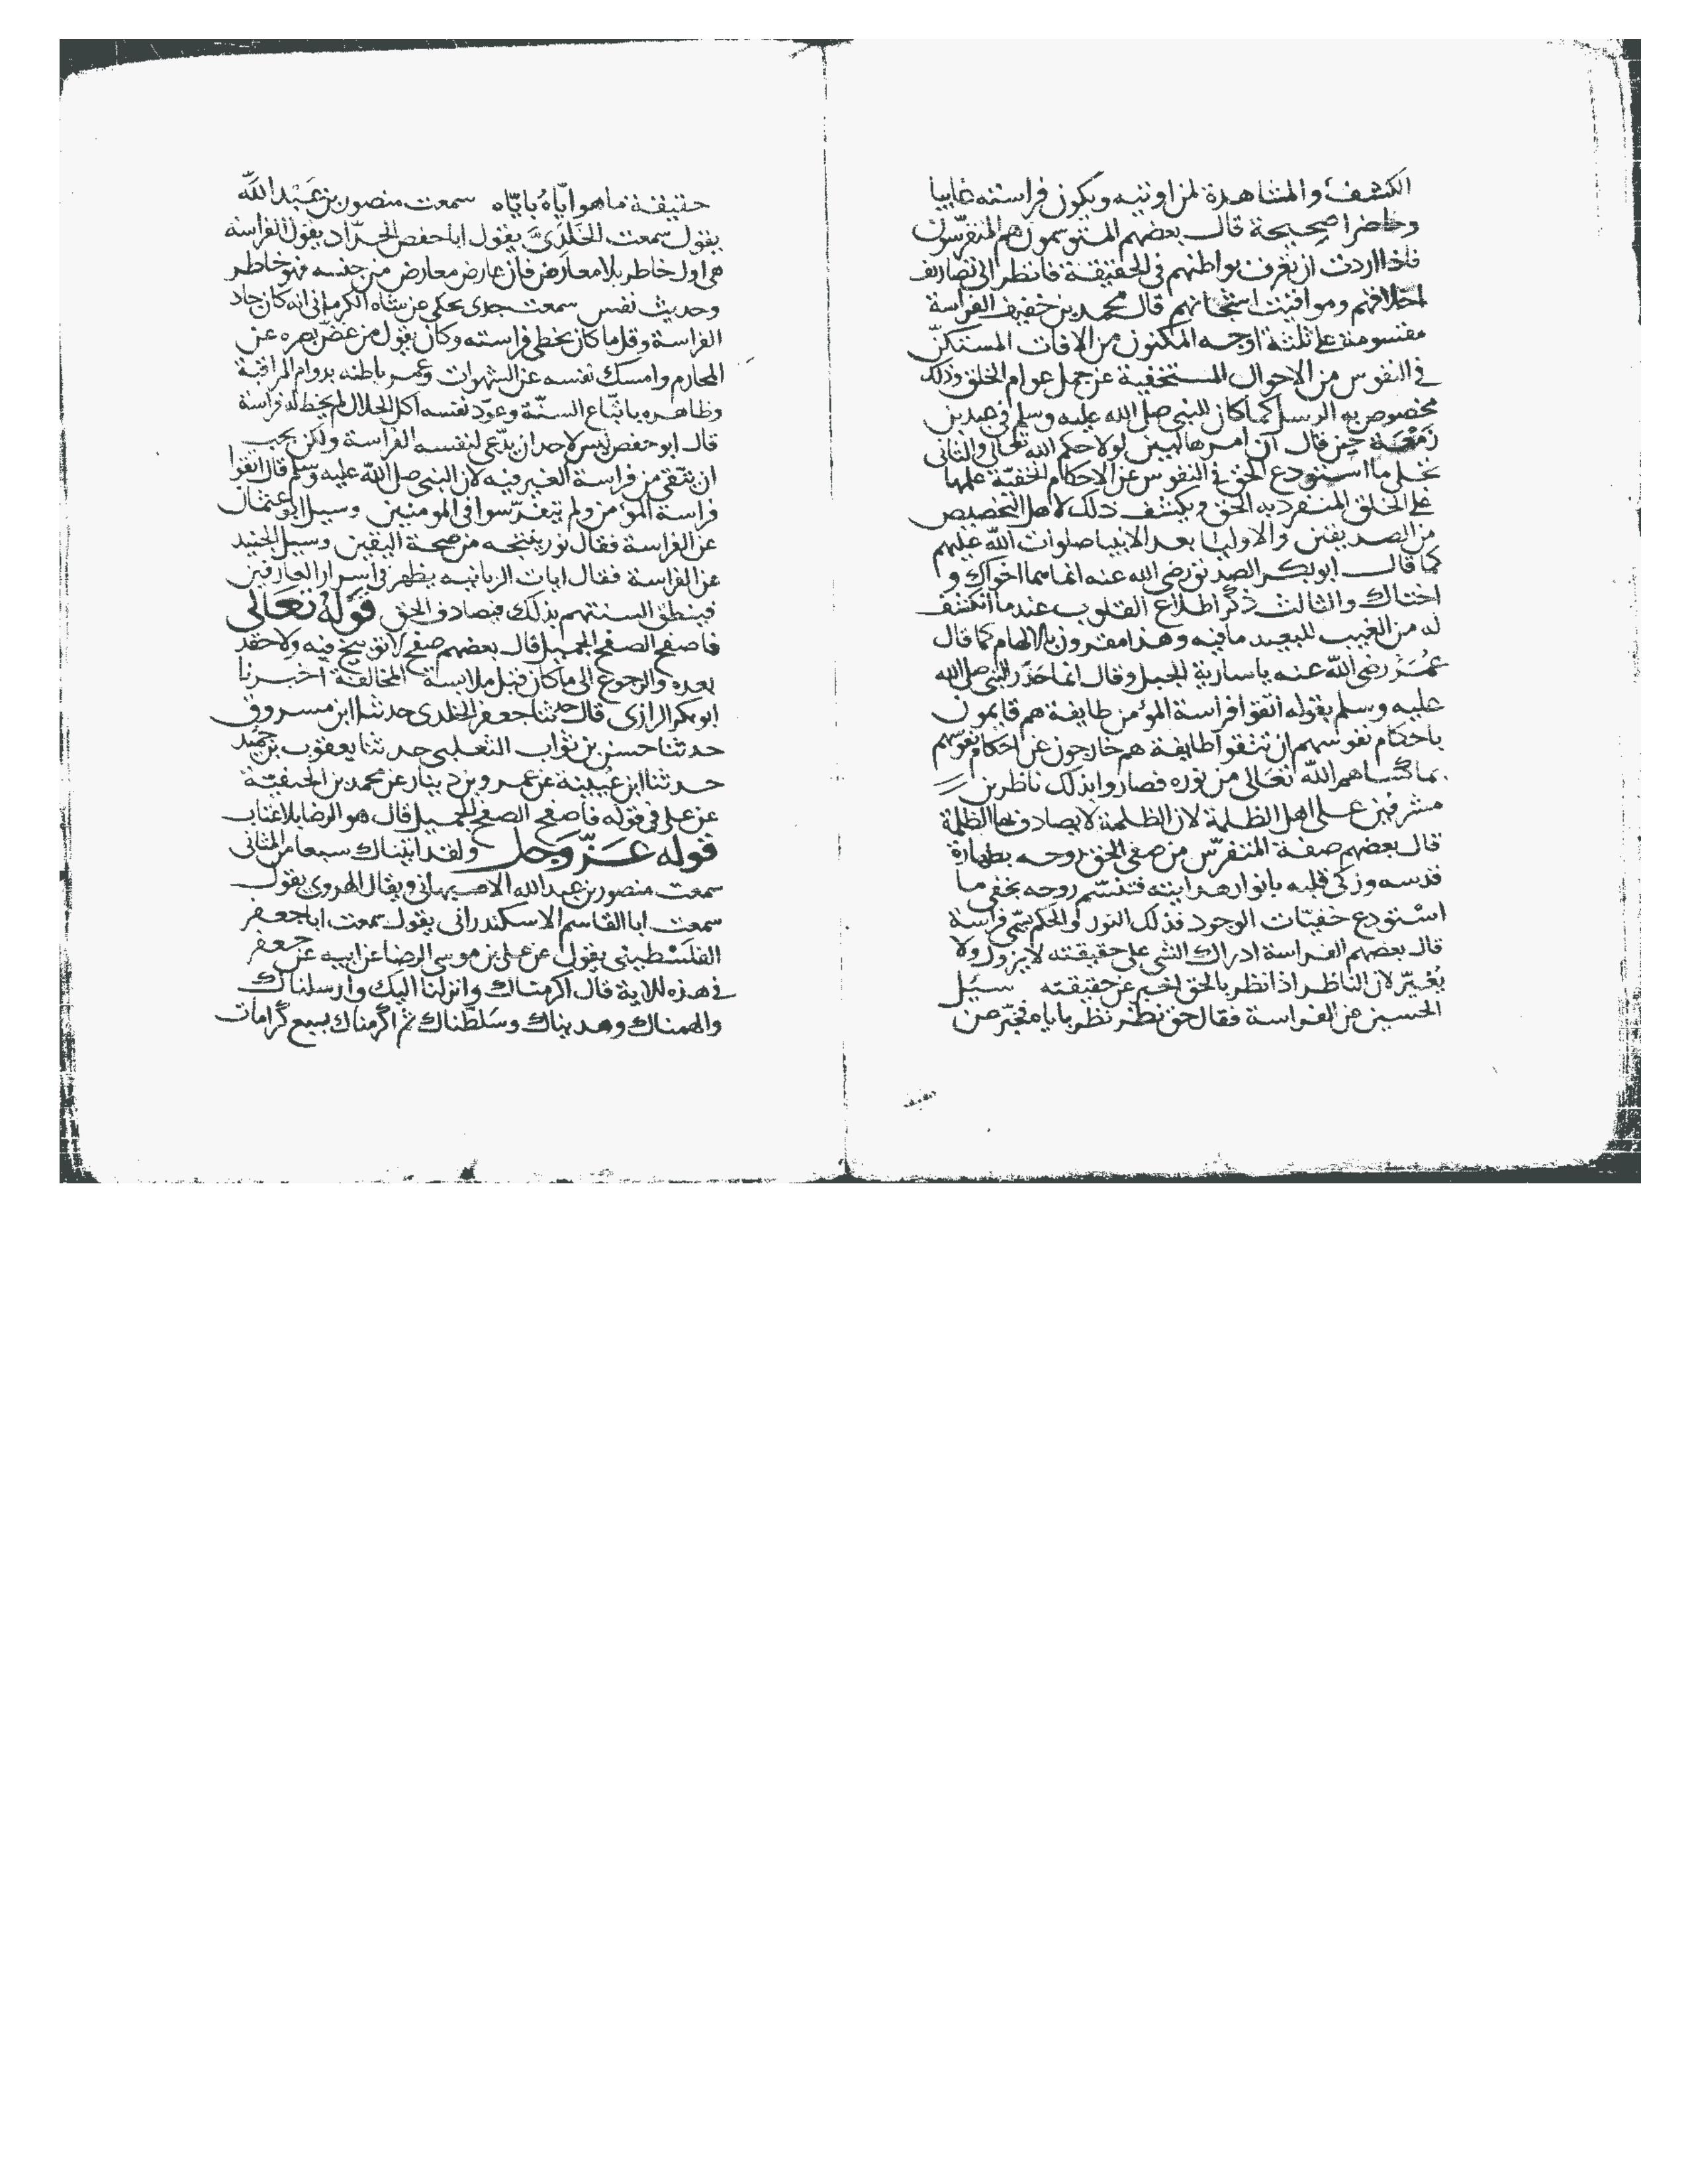 الكشف والمشاهدة لمن اوتيه ويكون فراسته غايبا
وحاضرا صحيحة قال بعضهم المتوسمون هم المتفرسون
فاذا اردت ان تعرف بواطنهم في الحقيقة فانظر الى تصاريف
اخلاقهم وموافقت قال محمد بن خفيف الفراسة
مقسومة على ثلثة اوجه المكنون من الافات المستكنّ
في النفوس من الاحوال المستخفية عن جمل عوام الخلق وذلك
مخصوص به الرسل كما كان للنبي صلى الله عليه وسلم في عبد بن
زَمْعَة حين قال ان امرها لبين لولا حكم الله تعالى والثاني
تجلى ما استودع الحق في النفوس عن الاحكام الخفيّة علمها
على الخلق المنفرد به الحق ويكشف ذلك لاهل التخصيص
من الصديقين والاوليا بعد الانبيا صلوات الله عليهم
كما قال ابو بكر الصديق رضى الله عنه انما هما اخواك و
اختاك والثالث ذكر اطلاع القلوب عندما انكشف
له من الغيب للبعيد ما فيه وهذا مقرون بالالهام كما قال
عُمَر رضى الله عنه يا سارية الجبل وقال انما حَذّر النبى صلى الله
عليه وسلم بقوله اتقوا فراسة المؤمن طايفة هم قايمون
باحكام نفوسهم ان تتقوا طايفة هم خارجون عن احكام نفوسهم
بما كساهم الله تعالى من نوره فصاروا بذلك ناظرين
مشرفين على اهل الظلمة لان الظلمة لا يصادف بها الظلمة
قال بعضهم صفة المتفرّس من صفى الحق روحه بطهارة
قدسه وزكى قلبه بانوار هدايته فتنسّم روحه بخفى ما
استودع خفيّات الوجود فذلك النور والحكم يسمّى فراسة
قال بعضهم الفراسة ادراك الشى على حقيقته لا يزول ولا
يُغيّر لان الناظر اذا نظر بالحق اخبر عن حقيقته سئل
الحسين عن الفراسة فقال حق نظر نظر باياه فخبّر عن
حقيقة ما هو ايّاهُ بايّاه سمعت منصور بن عَبْد الله
يقول سمعت الخَلَدِىّ يقول ابا حفص الحدّاد يقول الفراسة
هى اول خاطر بلا معارض فان عارض معارض من جنسه فهو خاطر
وحديث نفس سمعت جدى يحكى عن شاه الكرمانى انه كان حاد
الفراسة وقل ما كان يخطى فراسته وكان يقول من غضّ بصره عن
المحارم وامسك نفسه عن الشهوات وعمر باطنه بدوام المراقبة
وظاهره باتّباع السنّة وعوّد نفسه اكل الحلال لم يخط له فراسة
قال ابو حفص ليس لاحد ان يدّعى لنفسه الفراسة ولكن يجب
ان يتّقى من فراسة الغير فيه لان النبى صلى الله عليه وسلم قال اتقوا
فراسة المؤمن ولم يقل تفرّسوا في المومنين وسيل ابو عثمان
عن الفراسة فقال نور ينتجه من صحة اليقين وسيل الجنيد
عن الفراسة فقال ايات الربانيه يظهر في اسرار العارفين
فينطق السنتهم بذلك فيصادف الحق قَولهُ تعَالى
فاصفح الصفح الجميل قال بعضهم صفح لا توبيخ فيه ولا حقد
بعده والرجوع الى ما كان قبل ملابسة المخالفة اخبرنا
ابو بكر الرازى قال حدثنا جعفر الخلدى حدثنا ابن مسروق
حدثنا حسن بن ثواب التغلبى حدثنا يعقوب بن حُمَيد
حدثنا ابن عُيينة عن عمرو بن دينار عن محمد بن الحنفيّة
عن على في قوله فاصفح الصفح الجميل قال هو الرضا بلا عتاب
قوله عَزّ وَجل ولقد اتيناك سبعا من المثانى
سمعت منصور بن عبد الله الاصبهانى ويقال الهروى يقول
سمعت ابا القاسم الاسكندرانى يقول سمعت ابا جعفر
الفلسْطينى يقول عن على بن موسى الرضا عن ابيه عن جعفر
في هذه الاية قال اكرمناك وانزلنا اليك وارسلناك
والهمناك وهديناك وسَلطّناك ثم اكرمناك بسبع كرامات